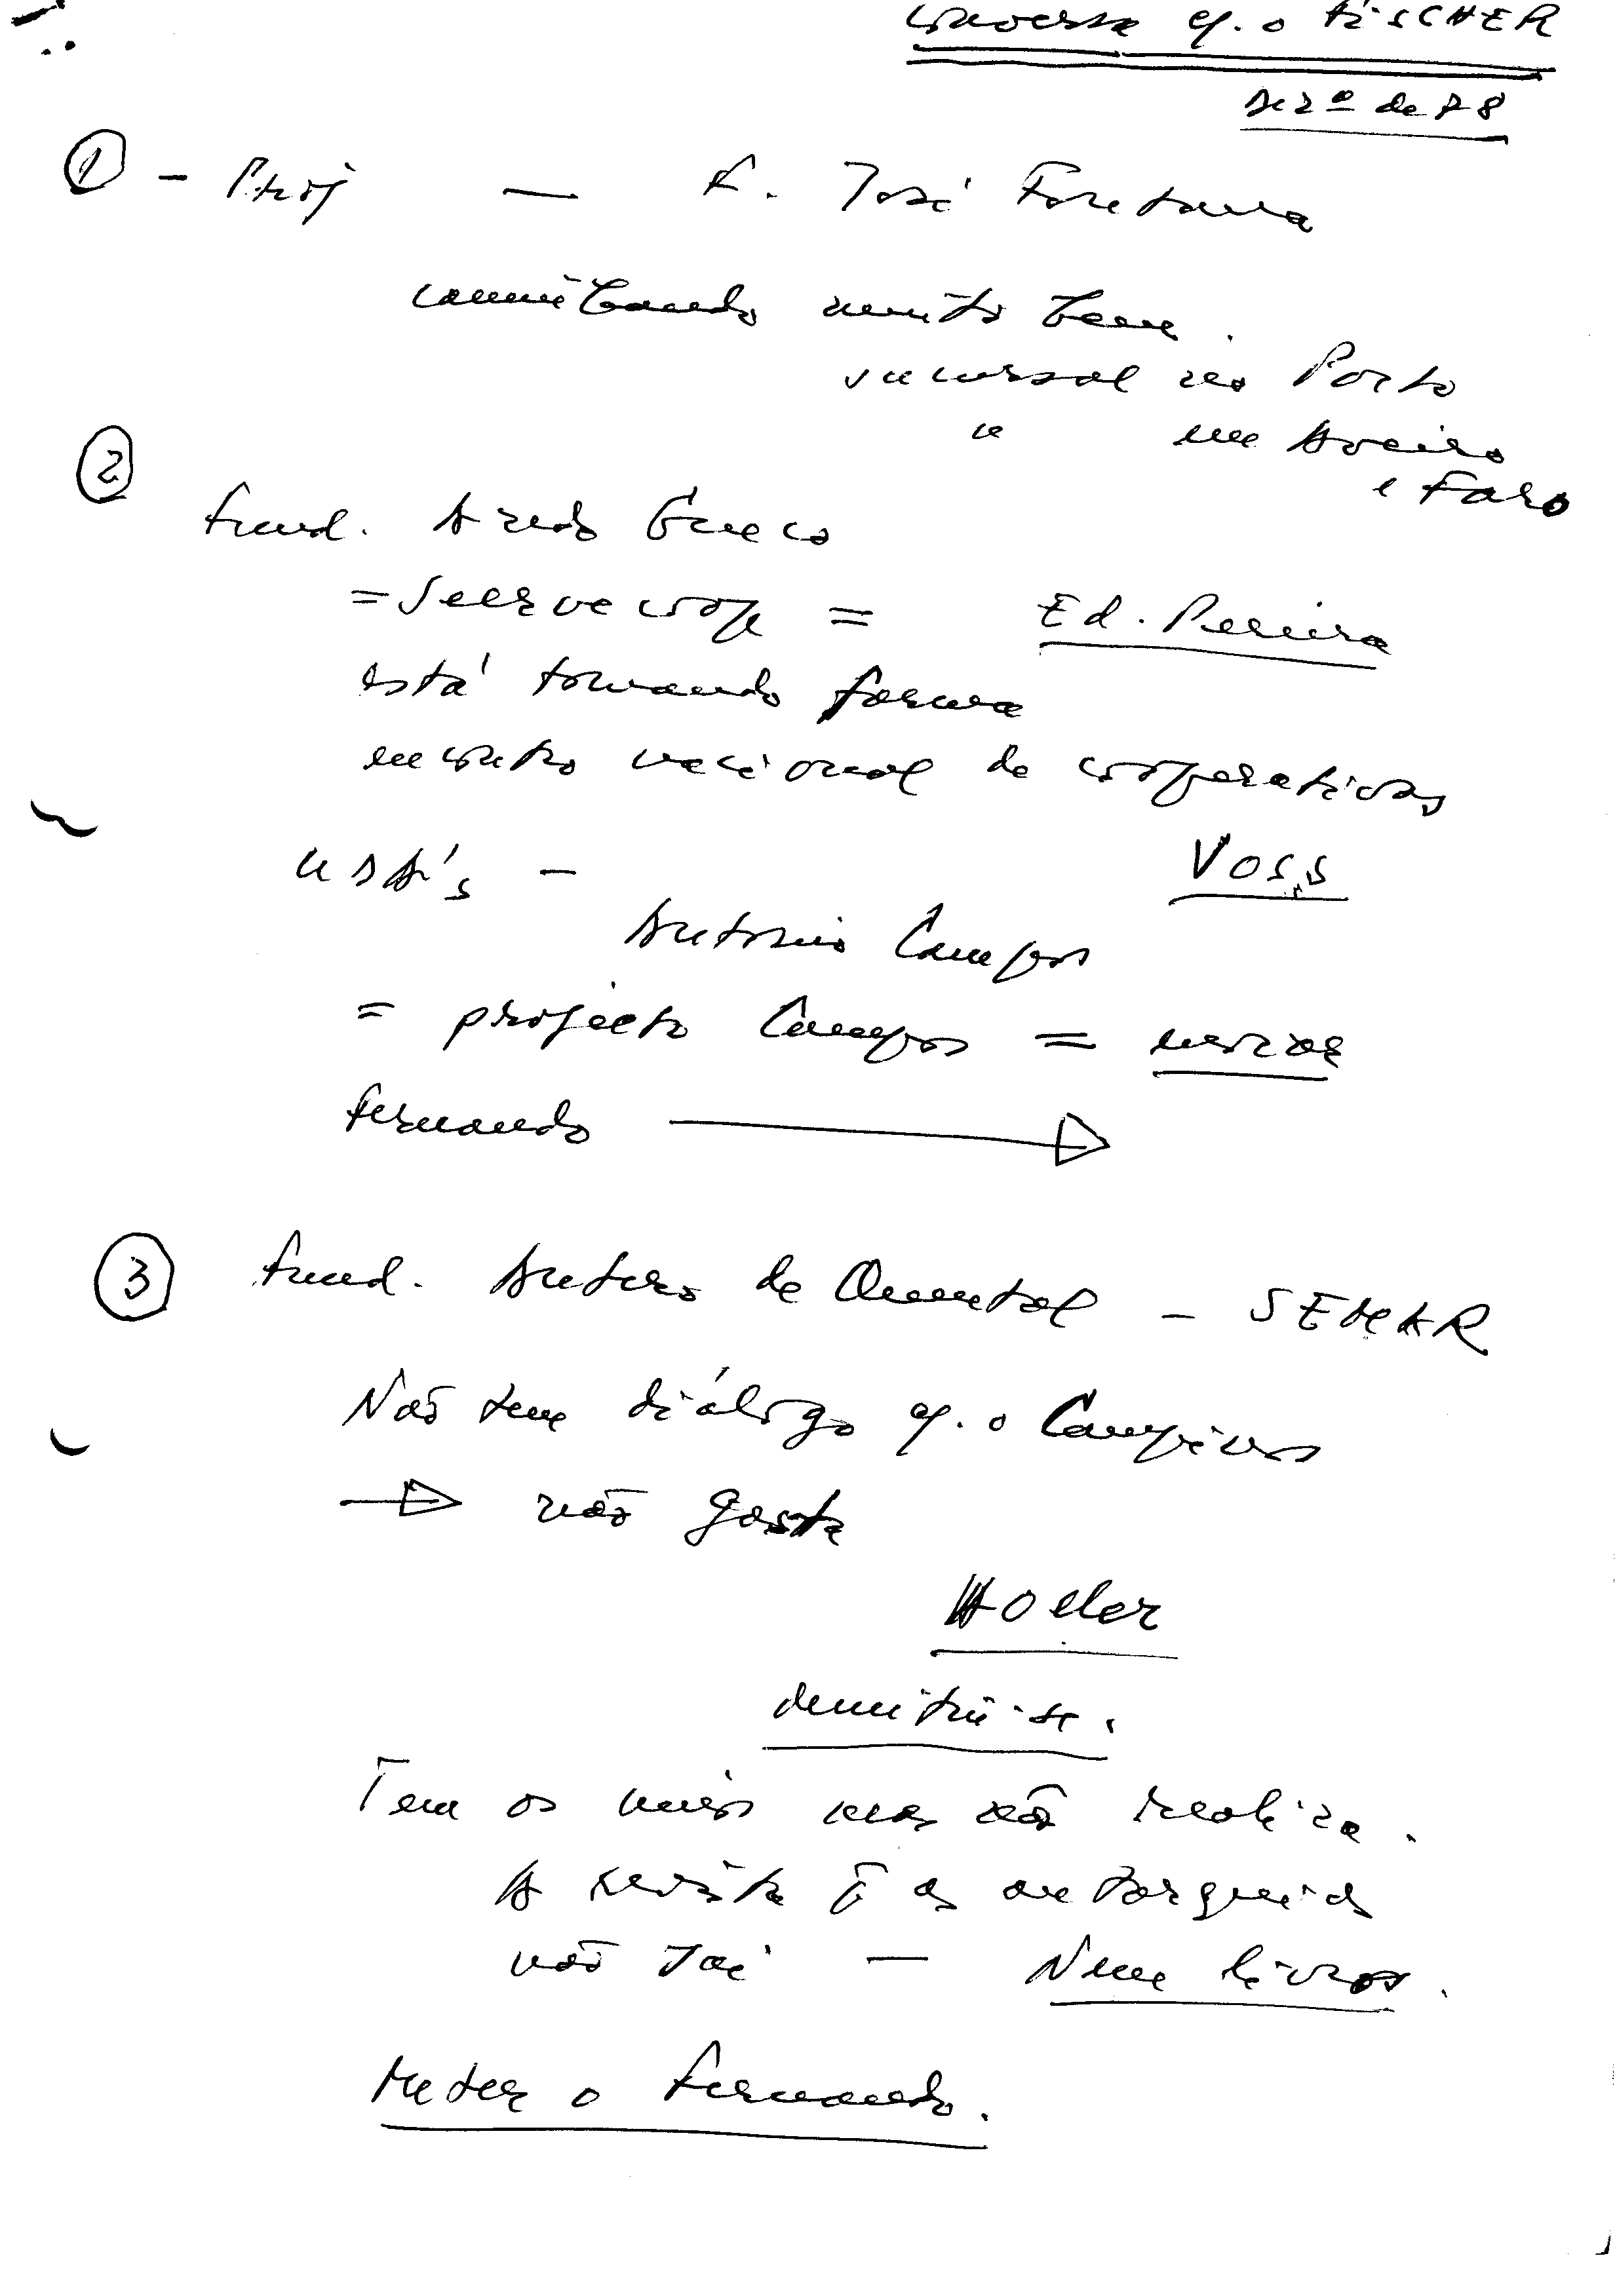 conversa c/. o FISCHER
dezº de 78
① - Proj — F. José Fontana
caminhando muito bem.
sucursal no Porto
" em Aveiro
e Faro
②
Fund. Azedo Gneco
= Servecoop = Ed. Pereira
está tomando forma
encontro nacional de cooperativas
Voss
António Campos
= projecto Campos =
Fernando →
③ Fund. Antero de Quental - SEMAR
Não tem diálogo c/. o Campinos
→ não gosta
demitiu-se.
Tem os meios mas não realiza.
A revista p̄ as autarquias
não sai — Nem livros.
Meter o Fernando.